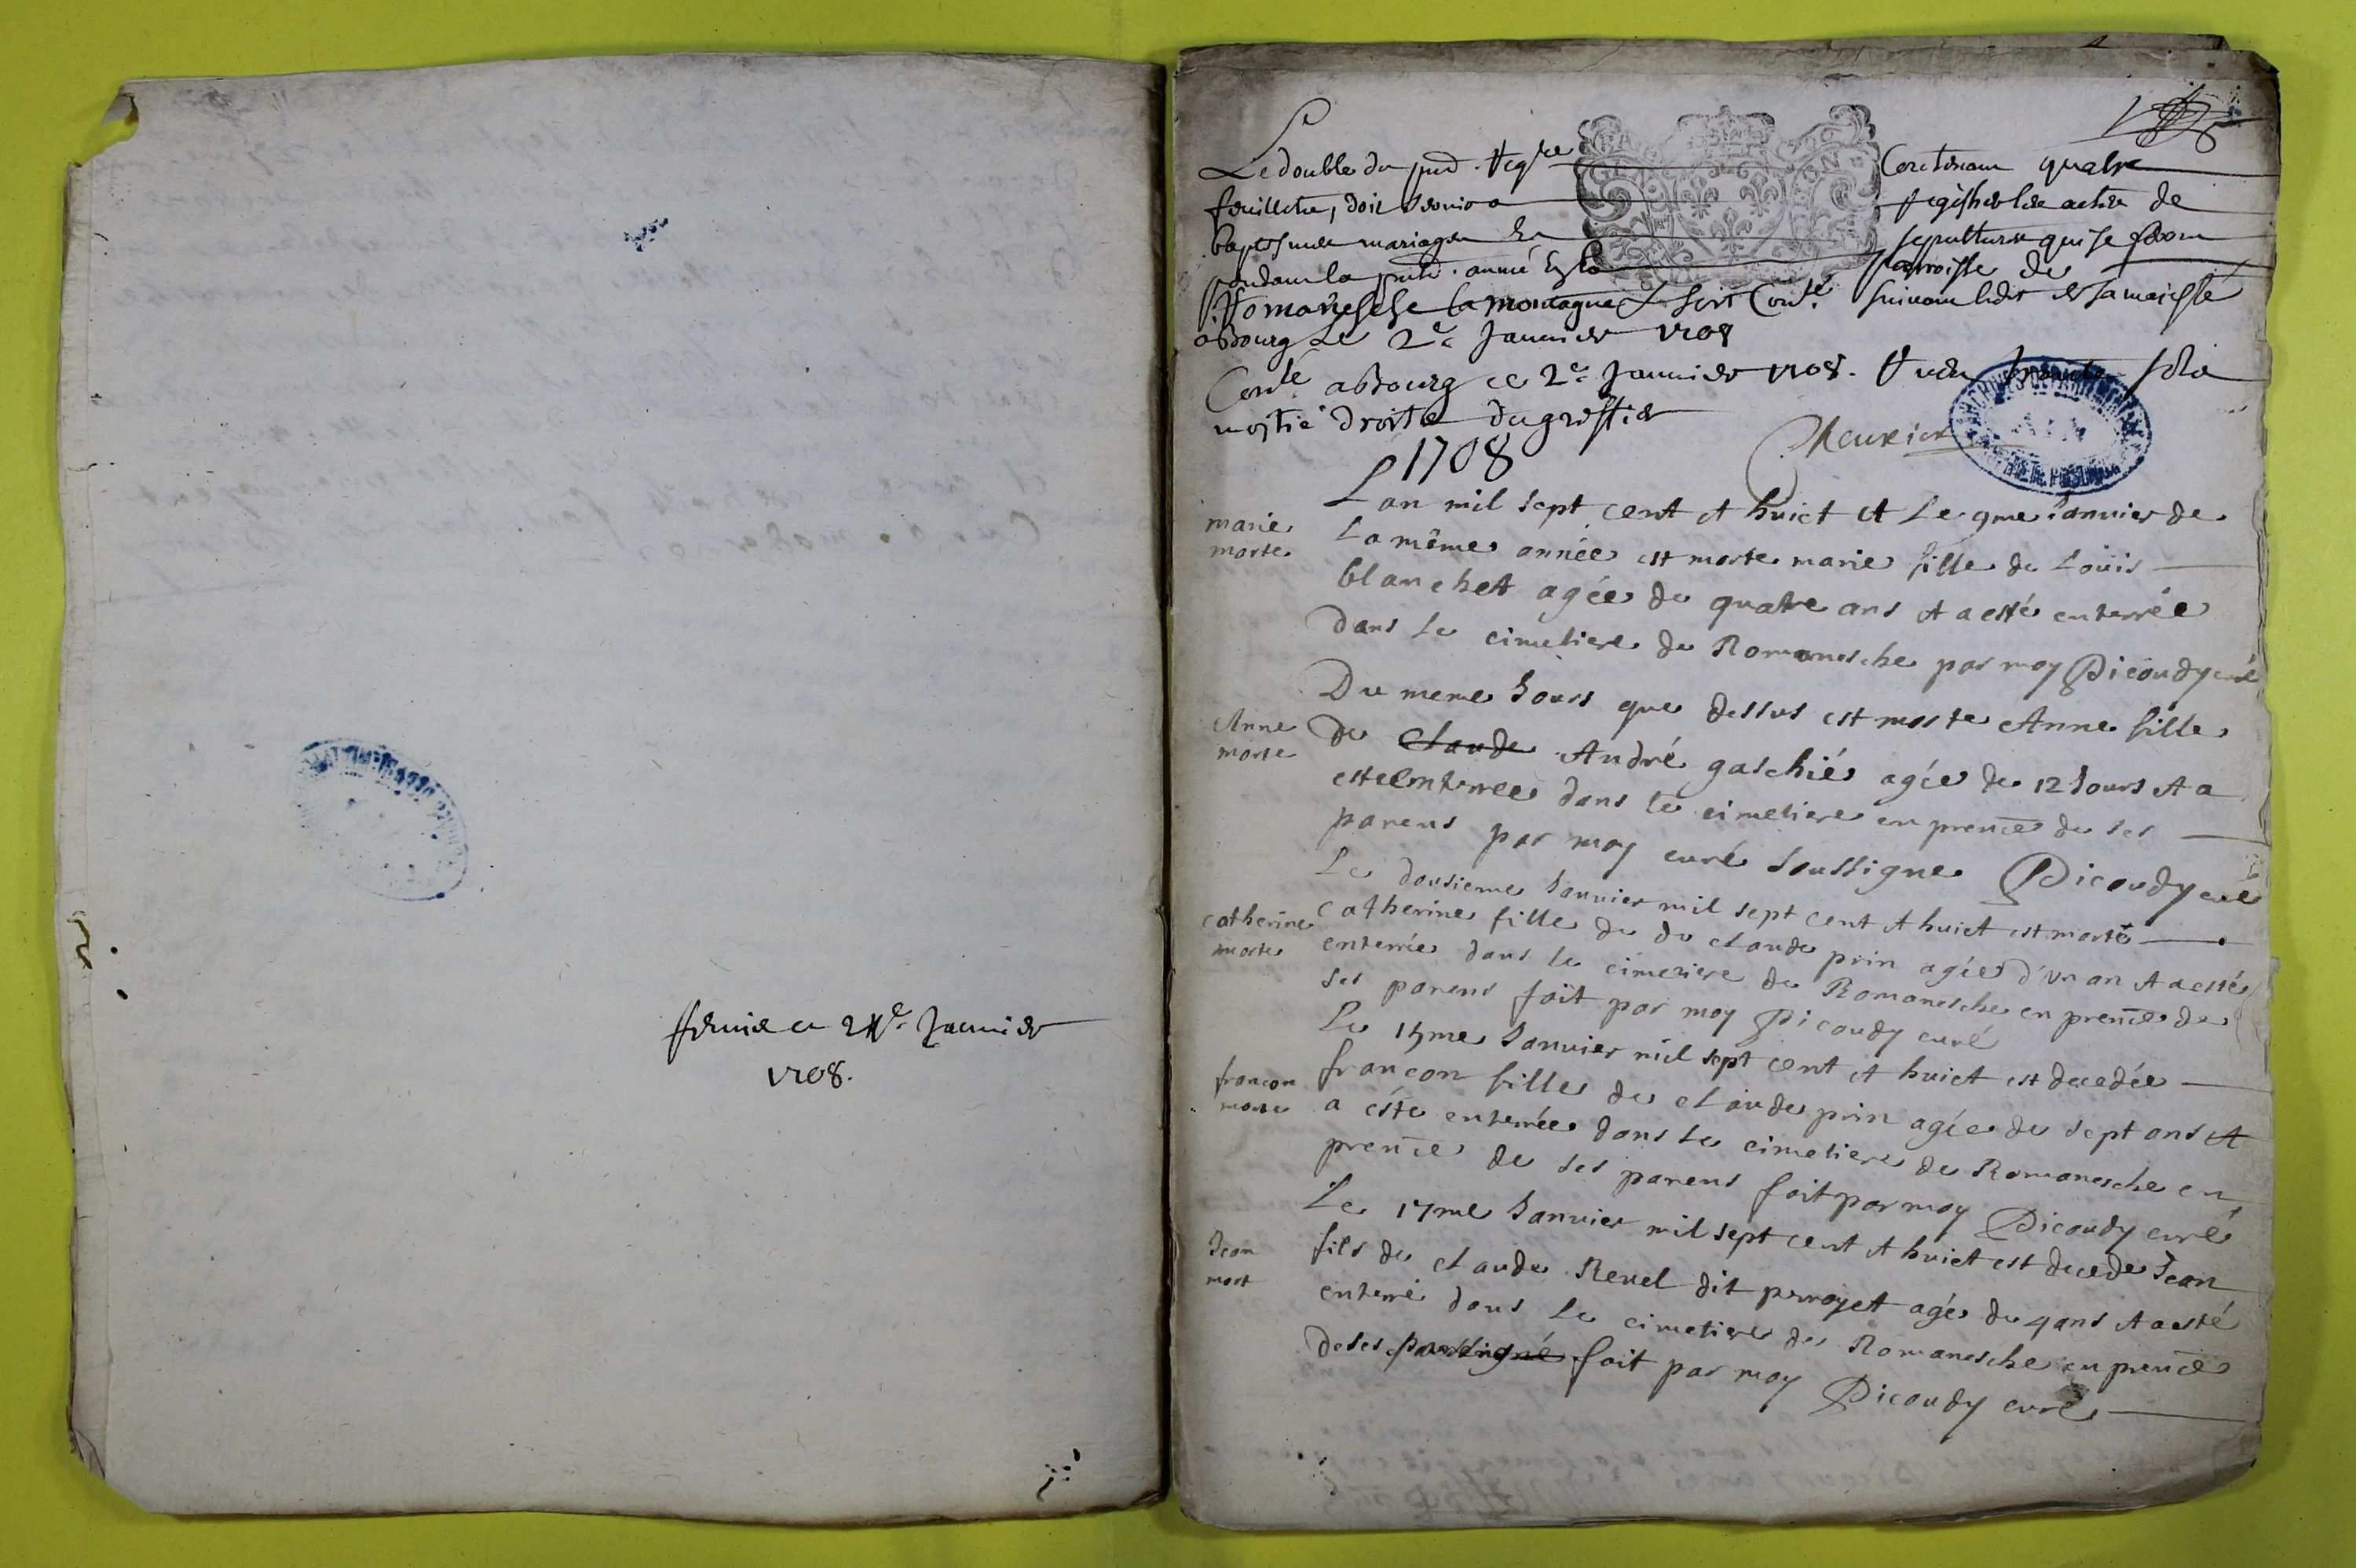 fournie ce 2e Januier
1708.
Le double du pnt Regre Contenant quatre
feuillets, doit seruir a registrer les actes de
baptesmes mariages Et sepultures qui se feront
pendant la pnte année En la parroisse de
Romanesche la montagne Et sera Conté suiuant ledit de sa majesté
a Bourg Le 2e Januier 1708
Conté a Bourg ce 2e Januier 1708. pour la
moitié droits du greffier
Meurier
1708
Lan mil sept cent et huict et le 9me Ianuier de
marie
morte
La même année est morte marie fille de Loüis
blanchet agée de quatre ans et a esté enterrée
dans le cimetiere de Romanesche par moy Dicoudy curé
Du meme Iours que dessus est morte Anne fille
Anne
morte
de Claude André gaschié agée de 12 Iours et a
esté enterree dans le cimetiere en prence de ses
parens par moy curé soussigne Dicoudy curé
Le dousieme Ianuier mil sept cent et huict est morte
catherine
morte
catherine fille de de claude prin agée d'un an et a esté
enterrée dans le cimetiere de Romanesche en prence de
ses parens fait par moy Dicoudy curé
Le 15me Ianuier mil sept cent et huict est decedée
francon
morte
francon fille de claude prin agée de sept ans et
a éste enterrée dans le cimetiere de Romanesche en
prence de ses parens fait par moy Dicoudy curé
Le 17me Ianuier mil sept cent et huict est decede Iean
Iean
mort
fils de claude Reuel dit perroyet agé de 4 ans et a esté
enterré dans le cimetiere de Romanesche en prence
de ses fait par moy Dicoudy curé